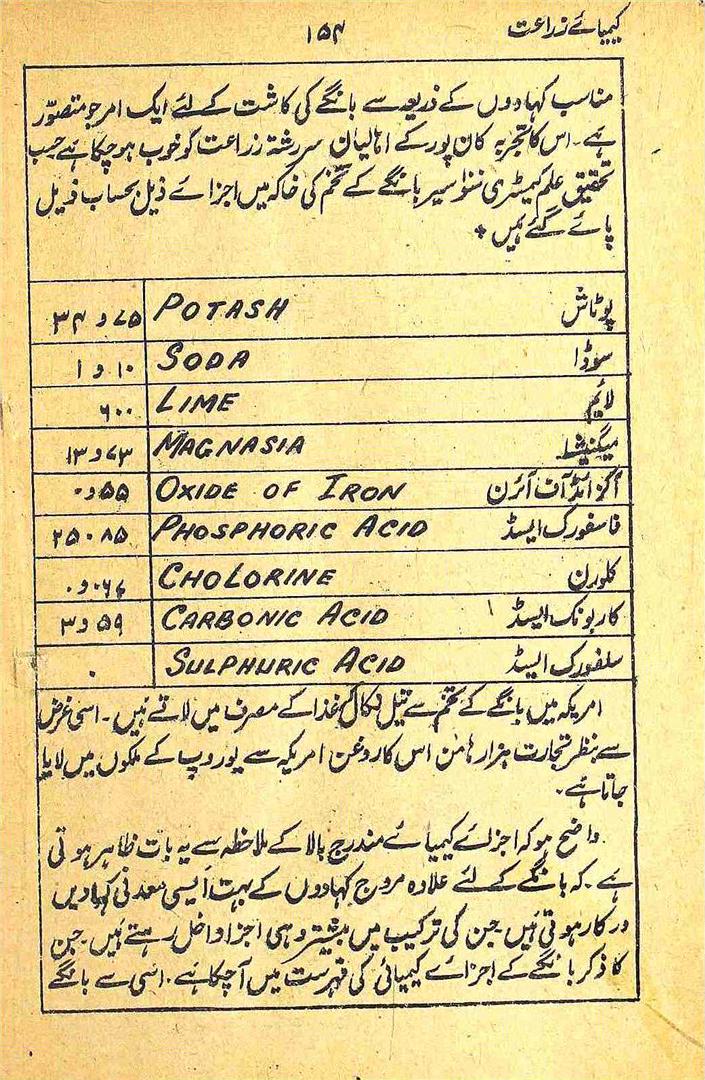 کیمیائے زراعت ۱۵۴
مناسب کہادوں کے ذریعہ سے بانگے کی کاشت کے لئے ایک امر جو متصوّر
ہے۔ اس کا تجربہ کان پور کے اہالیان سررشتۂ زراعت کو خوب ہو چکا ہے حسب
تحقیق علم کیمسٹری سَو سیر بانگے کے تخم کی خاکہ میں اجزائے ذیل بحساب ذیل
پائے گئے ہیں ٭
پوٹاش POTASH ۷۵ و ۳۴
سوڈا SODA ۱۰ و ۱
لائیم LIME ۶۰۰
میگنیشا MAGNASIA ۷۳ و ۱۳
آکزائڈ آف آئرن OXIDE OF IRON ۵۵ و ۰
فاسفورک ایسڈ PHOSPHORIC ACID ۲۵۰۸۵
کلورن CHOLORINE ۰۷۶ و ۰
کاربونک ایسڈ CARBONIC ACID ۵۹ و ۳
سلفورک ایسڈ SULPHURIC ACID ۰
امریکہ میں بانگے کے تخم سے تیل نکال کر غذا کے مصرف میں لاتے ہیں۔ اسی غرض
سے بنظر تجارت ہزارہا من اس کا روغن امریکہ سے یوروپ کے ملکوں میں لایا
جاتا ہے۔
واضح ہو کہ اجزائے کیمیائے مندرج بالا کے ملاحظہ سے یہ بات ظاہر ہوتی
ہے۔ کہ بانگے کے لئے علاوہ مروج کہادوں کے بہت ایسی معدنی کہادیں
درکار ہوتی ہیں۔ جن کی ترکیب میں بیشتر وہی اجزا داخل رہتے ہیں۔ جن
کا ذکر بانگے کے اجزائے کیمیائی کی فہرست میں آ چکا ہے۔ اسی سے بانگے